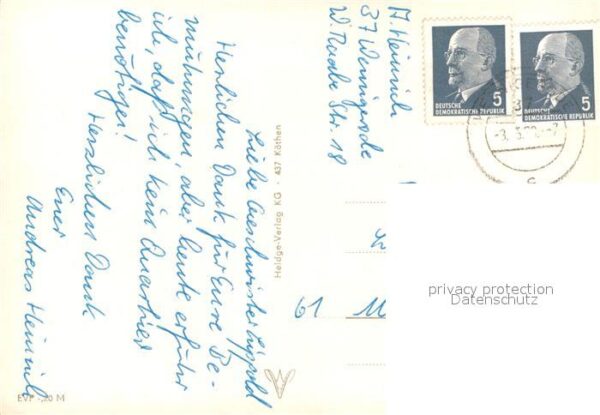 Liebe Geschwister Lippold
Herzlichen Dank für Eure Be-
mühungen, aber heute erfuhr
ich, daß ich kein Quartier
benötige!
Herzlichen Dank
Euer
Andreas Heinrich
A Heinrich
37 Wernigerode
W. Raabe Str. 18
61 M
Heldge-Verlag KG · 437 Köthen
EVP -,20 M
5
DEUTSCHE
DEMOKRATISCHE REPUBLIK
5
DEUTSCHE
DEMOKRATISCHE REPUBLIK
privacy protection
Datenschutz